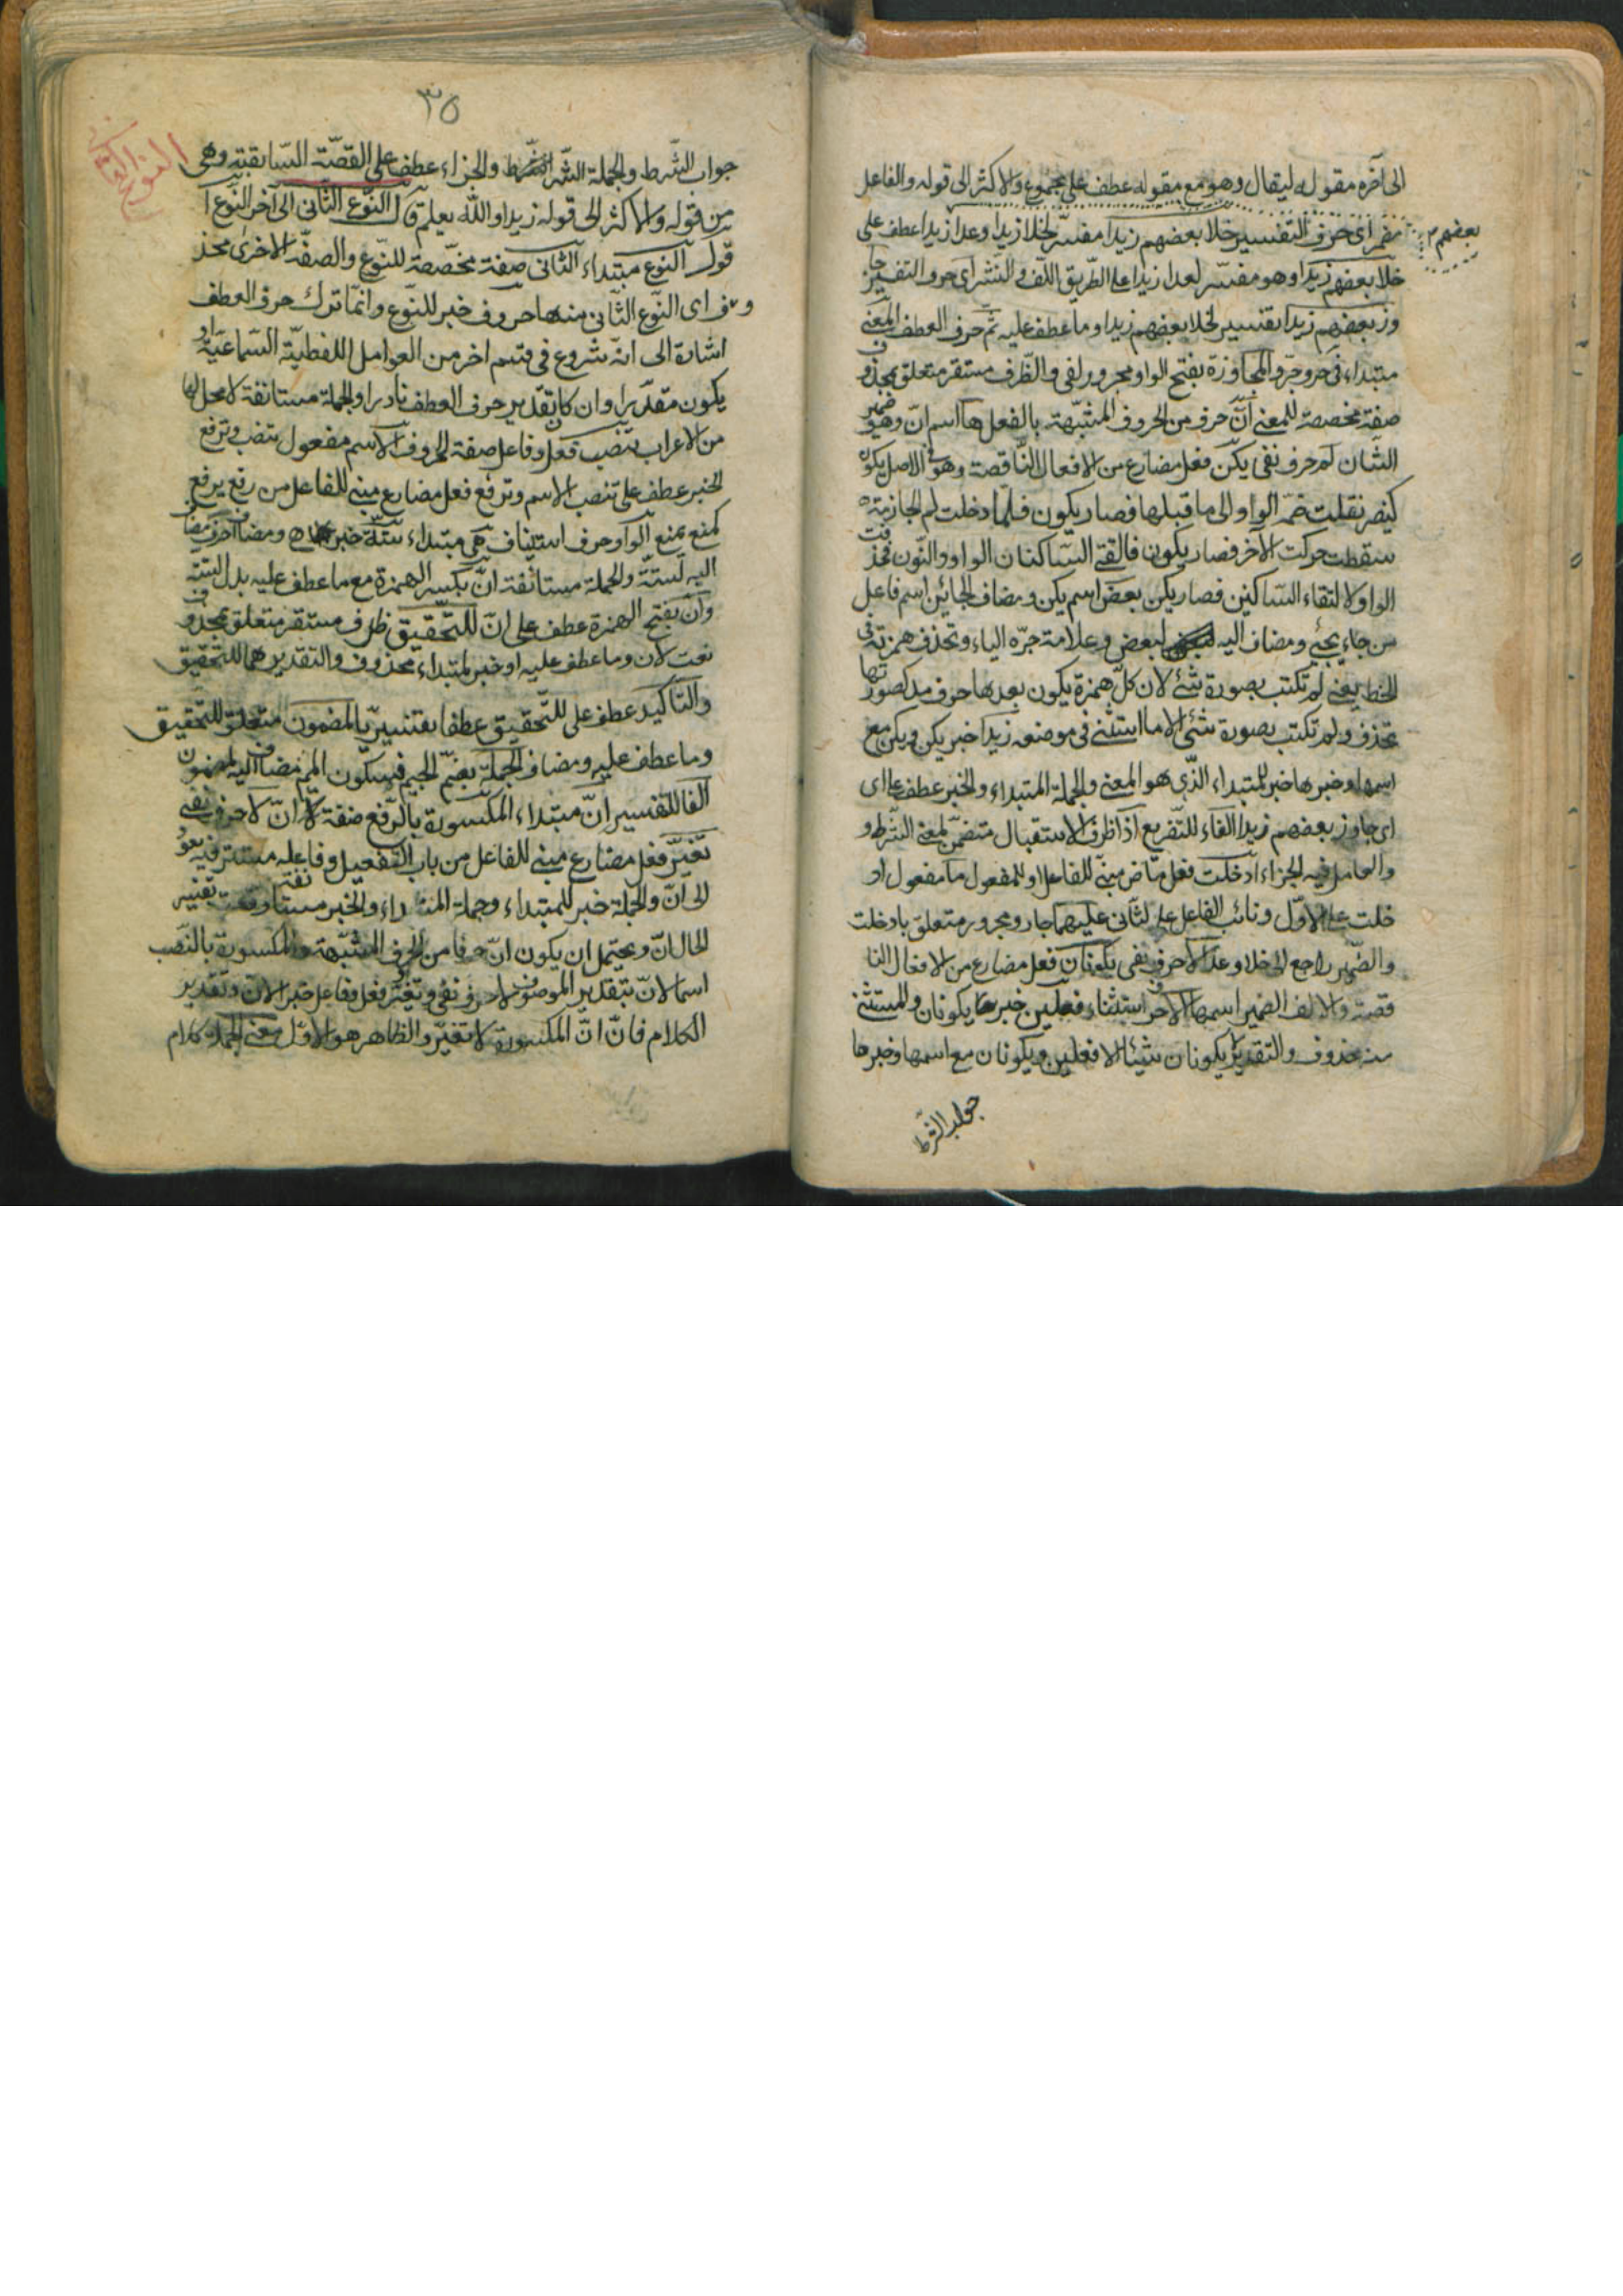 الى آخره مقول ليقال وهو مع مقوله عطف على مجموع والاكثر الى قوله والفاعل
بعضهم
اى حرف التفسير خلا بعضهم زيدا مفسّر لخلا زيدا وعدا زيدا عطف على
خلا بعضهم زيدا وهو مفسّر لعدا زيدا على الطّريق اللّف والنّشر اى حرف التفسير جا
وز بعضهم زيدا تفسير لخلا بعضهم زيدا وما عطف عليه ثمّ حرف العطف المعنى
مبتداء فى حرف جرّ والمجاوزة بفتح الواو مجرور لفى والظّرف مستقر متعلق بمحذوف
صفة مخصصة للمعنى انّ حرف من الحروف المشبّهة بالفعل ها اسم انّ وهو ضمير
الشّان لم حرف نفى يكن فعل مضارع من الافعال النّاقصة وهو فى الاصل يكون
كينصر نقلت ضمّه الواو الى ما قبلها فصار يكون فلمّا دخلت لم الجازمة
سقطت حركت الآخر فصار يكون فالتقى السّاكنان الواو والنّون فحذفت
الواو لالتقاء السّاكنين فصار يكن بعض اسم يكن ومضاف الجائين اسم فاعل
من جاء يجئ ومضاف اليه لبعض وعلامة جرّه الياء وتحذف همزته فى
الخط يعنى لم تكتب بصورة شئ لان كلّ همزة يكون بعدها حرف مد كصورتها
تحذف ولم تكتب بصورة شئ الا ما استثنى فى موضعه زيدا خبر يكن ويكن مع
اسمها وخبرها خبر للمبتداء الذّى هو المعنى والجملة المبتداء والخبر عطف على اى
اى جاوز بعضهم زيدا الفاء للتّفريع اذا ظرف الاستقبال متضمّن لمعنى الشّرط و
والعامل فيه الجزاء ادخلت فعل ماض مبنىّ للفاعل او للمفعول ما مفعول اد
خلت على الاوّل ونائب الفاعل على الثّانى عليهما جار ومجرور متعلق بادخلت
والضّمير راجع الى خلا وعدا لا حرف نفى يكونان فعل مضارع من الافعال النا
قصة والالف الضمير اسمها الا حرف استثناء فعلين خبر ها يكونان والمستثنى
منه محذوف والتقدير لا يكونان شيئا الا فعلين ويكونان مع اسمها وخبرها
جواب الشّرط
٣٥
النوع الثانى
جواب الشّرط والجملة الشّرط والجزاء عطف على القصّة السّابقة وهى
من قوله والاكثر الى قوله زيدا والله يعلم قال النّوع الثّانى الى آخر النّوع ا
قول النوع مبتداء الثانى صفة مخصّصة للنّوع والصفّة الاخرى محذ
وف اى النّوع الثّانى منها حروف خبر للنّوع وانمّا ترك حرف العطف
اشارة الى انّه شروع فى قسم اخر من العوامل اللفظيّة السّماعيّة او
يكون مقدّرا وان كان تقدير حرف العطف نادرا والجملة مستانفة لا محل لها
من الاعراب تنصب فعل وفاعل صفة الحروف الاسم مفعول تنصب وترفع
الخبر عطف على تنصب الاسم وترفع فعل مضارع مبنى للفاعل من رفع يرفع
كمنع يمنع الواو حرف استيناف هى مبتداء ستّة خبر ومضاف احرف مضاف
اليه لستّة والجملة مستانفة انّ بكسر الهمزة مع ما عطف عليه بدل الستّة
وانّ بفتح الهمزة عطف على انّ للتّحقيق ظرف مستقر متعلق بمحذوف
نعت لانّ وما عطف عليه او خبر لمبتداء محذوف والتقدير هما للتّحقيق
والتّاكيد عطف على للتّحقيق عطفا تفسيريّا لمضمون متعلّق للتّحقيق
وما عطف عليه ومضاف الجملة بضمّ الجيم فسكون الميم مضاف اليه لمضمون
الفا للتفسير انّ مبتداء المكسورة بالرّفع صفة لانّ لا حرف نفى
تغيّر فعل مضارع مبنى للفاعل من باب التّفعيل وفاعله مستتر فيه يعود
الى انّ والجملة خبر للمبتداء وجملة المبتداء والخبر مستانفة وقعت تفسير
الحال انّ ويحتمل ان يكون انّ حرفا من الحرف المشبّهة والمكسورة بالنّصب
اسما لانّ بتقدير الموصوف لا حرف نفى وتغيّر فعل وفاعل خبر لانّ وتقدير
الكلام فانّ انّ المكسورة لا تغيّر والظاهر هو الاوّل معنى الجملة كلام